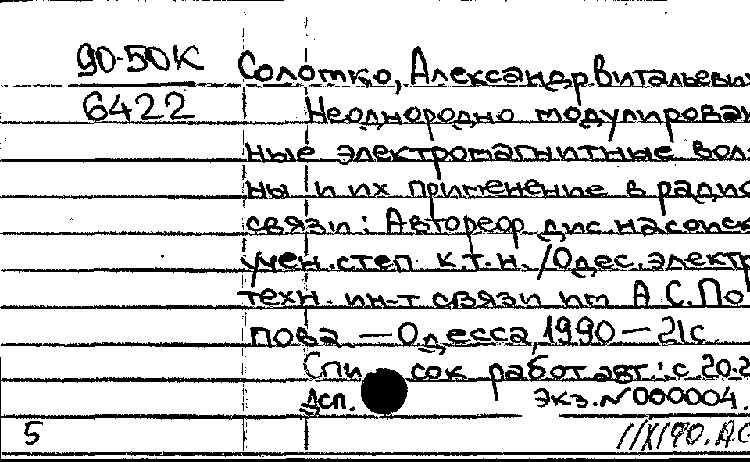 90-50К Солотко, Александр Витальевич
6422 Неоднородно модулирован
ные электромагнитные вол
ны и их применение в радио
связи: Автореф дис. на соиск
учен. степ к.т.н. / Одес. электр
техн. ин-т связи им А С. По
пова. — Одесса, 1990 — 21с
Список работ авт.: с 20-2
Дсп. Экз. № 000004.
5 11/XI 90. АС